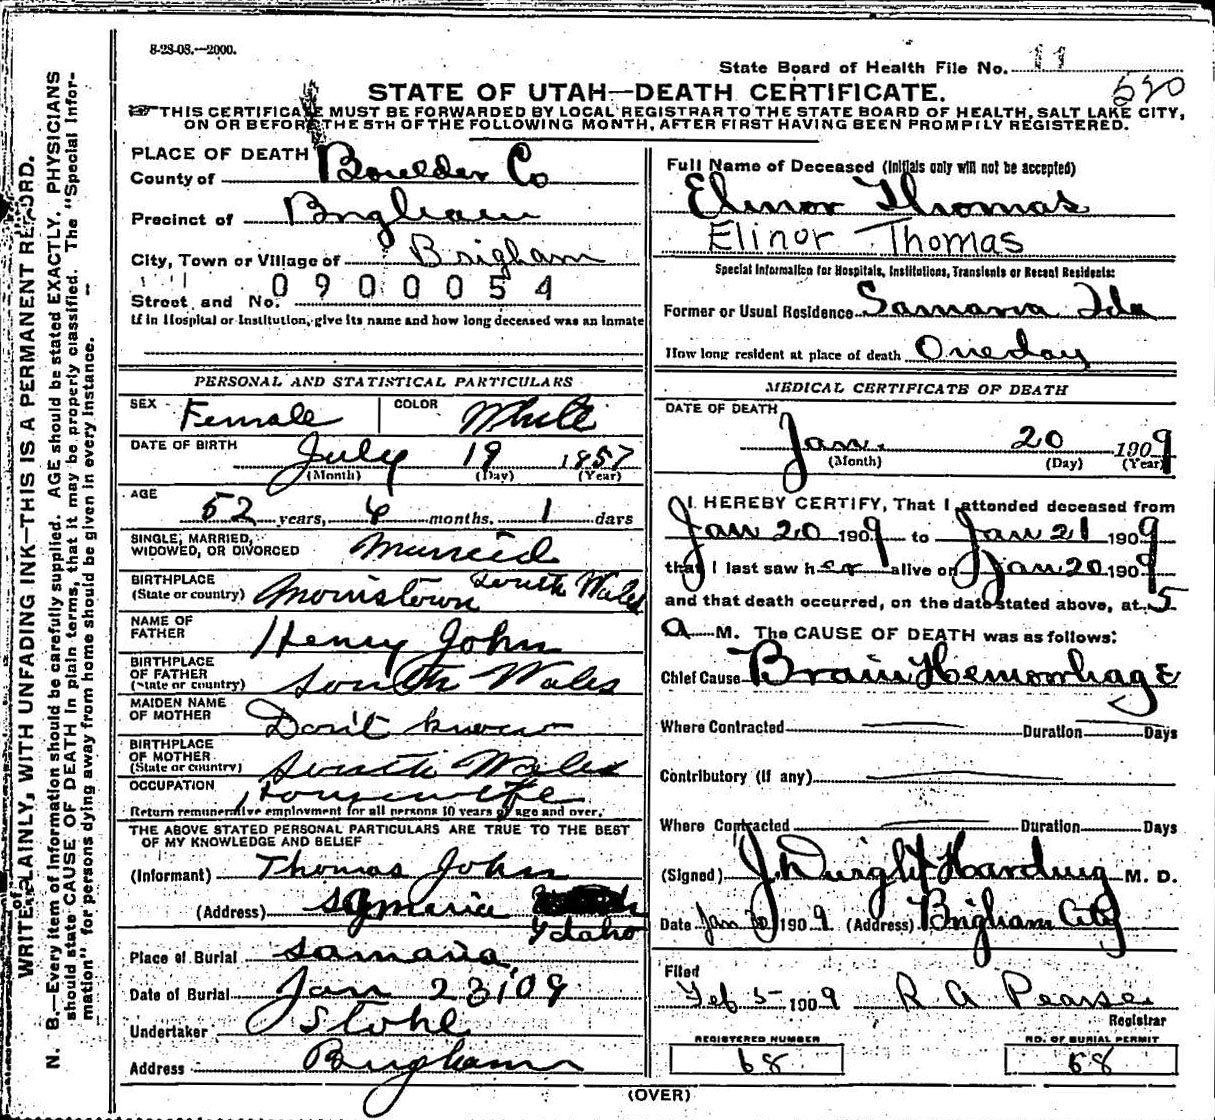 8-28-08.—2000.
State Board of Health File No. 11
590
STATE OF UTAH—DEATH CERTIFICATE.
THIS CERTIFICATE MUST BE FORWARDED BY LOCAL REGISTRAR TO THE STATE BOARD OF HEALTH, SALT LAKE CITY,
ON OR BEFORE THE 5TH OF THE FOLLOWING MONTH, AFTER FIRST HAVING BEEN PROMPTLY REGISTERED.
WRITE PLAINLY, WITH UNFADING INK—THIS IS A PERMANENT RECORD.
N. B.—Every item of information should be carefully supplied. AGE should be stated EXACTLY. PHYSICIANS
should state CAUSE OF DEATH in plain terms, that it may be properly classified. The "Special Infor-
mation" for persons dying away from home should be given in every instance.
PLACE OF DEATH
County of Boulder Co
Precinct of Brigham
City, Town or Village of Brigham
0900054
Street and No.
If in Hospital or Institution, give its name and how long deceased was an inmate
PERSONAL AND STATISTICAL PARTICULARS
SEX Female COLOR White
DATE OF BIRTH July 19 1857
(Month) (Day) (Year)
AGE
52 years, 6 months, 1 days
SINGLE, MARRIED,
WIDOWED, OR DIVORCED Married
BIRTHPLACE
(State or country) Morristown South Wales
NAME OF
FATHER Henry John
BIRTHPLACE
OF FATHER
(State or country) South Wales
MAIDEN NAME
OF MOTHER Don't know
BIRTHPLACE
OF MOTHER
(State or country) South Wales
OCCUPATION Housewife
Return remunerative employment for all persons 10 years of age and over.
THE ABOVE STATED PERSONAL PARTICULARS ARE TRUE TO THE BEST
OF MY KNOWLEDGE AND BELIEF
(Informant) Thomas John
(Address) Samaria
Idaho
Place of Burial Samaria
Date of Burial Jan 23, 09
Undertaker Stohl
Address Brigham
Full Name of Deceased (Initials only will not be accepted)
Elinor Thomas
Elinor Thomas
Special Information for Hospitals, Institutions, Transients or Recent Residents:
Former or Usual Residence Samaria Ida
How long resident at place of death One day
MEDICAL CERTIFICATE OF DEATH
DATE OF DEATH
Jan. 20 1909
(Month) (Day) (Year)
I HEREBY CERTIFY, That I attended deceased from
Jan 20 1909 to Jan 21 1909
that I last saw her alive on Jan 20 1909
and that death occurred, on the date stated above, at 5
a M. The CAUSE OF DEATH was as follows:
Chief Cause Brain Hemorrhage
Where Contracted Duration Days
Contributory (if any)
Where Contracted Duration Days
(Signed) J. Dwight Harding M. D.
Date Jan 30 1909 (Address) Brigham City
Filed
Feb 5 1909 R A Pearse
Registrar
REGISTERED NUMBER
68
NO. OF BURIAL PERMIT
68
(OVER)